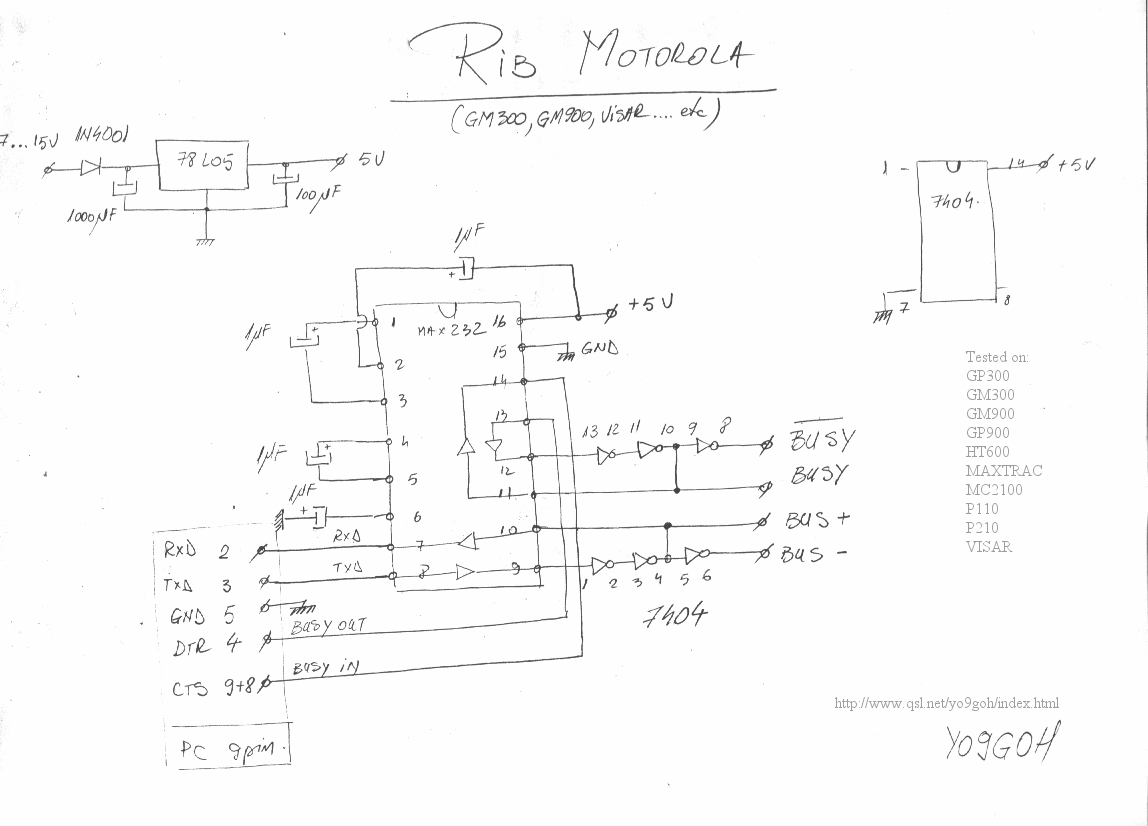 RIB MOTOROLA
(GM300, GM900, VISAR.... etc)
7...15V 1N4001
78L05
5V
1000µF
100µF
1 - 14 +5V
7404.
7 8
1µF
1µF
MAX232
1 16 +5V
15 GND
2
14
3
13
4
12
1µF
5
11
1µF
6
10
RxD
7
TxD
8 9
13 12 11 10 9 8
BUSY
BUSY
BUS +
BUS -
1 2 3 4 5 6
7404
RxD 2
TxD 3
GND 5
DTR 4
BUSY OUT
CTS 9+8
BUSY IN
PC 9pin.
Tested on:
GP300
GM300
GM900
GP900
HT600
MAXTRAC
MC2100
P110
P210
VISAR
http://www.qsl.net/yo9goh/index.html
YO9GOH